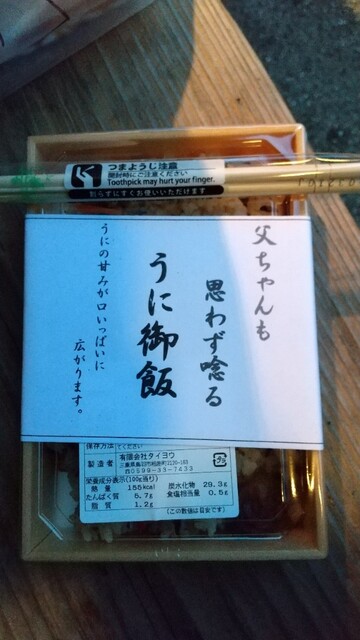 つまようじ注意
開封時にご注意ください
Toothpick may hurt your finger.
割らずにすぐお使いいただけます
父ちゃんも
思わず唸る
うに御飯
うにの甘みが口いっぱいに
広がります。
保存方法
てください
製造者
有限会社タイヨウ
0599-33-7433
栄養成分表示(100g当り)
熱量 155kcal
炭水化物 29.3g
たんぱく質 6.7g
食塩相当量 0.5g
脂質 1.2g
(この数値は目安です)